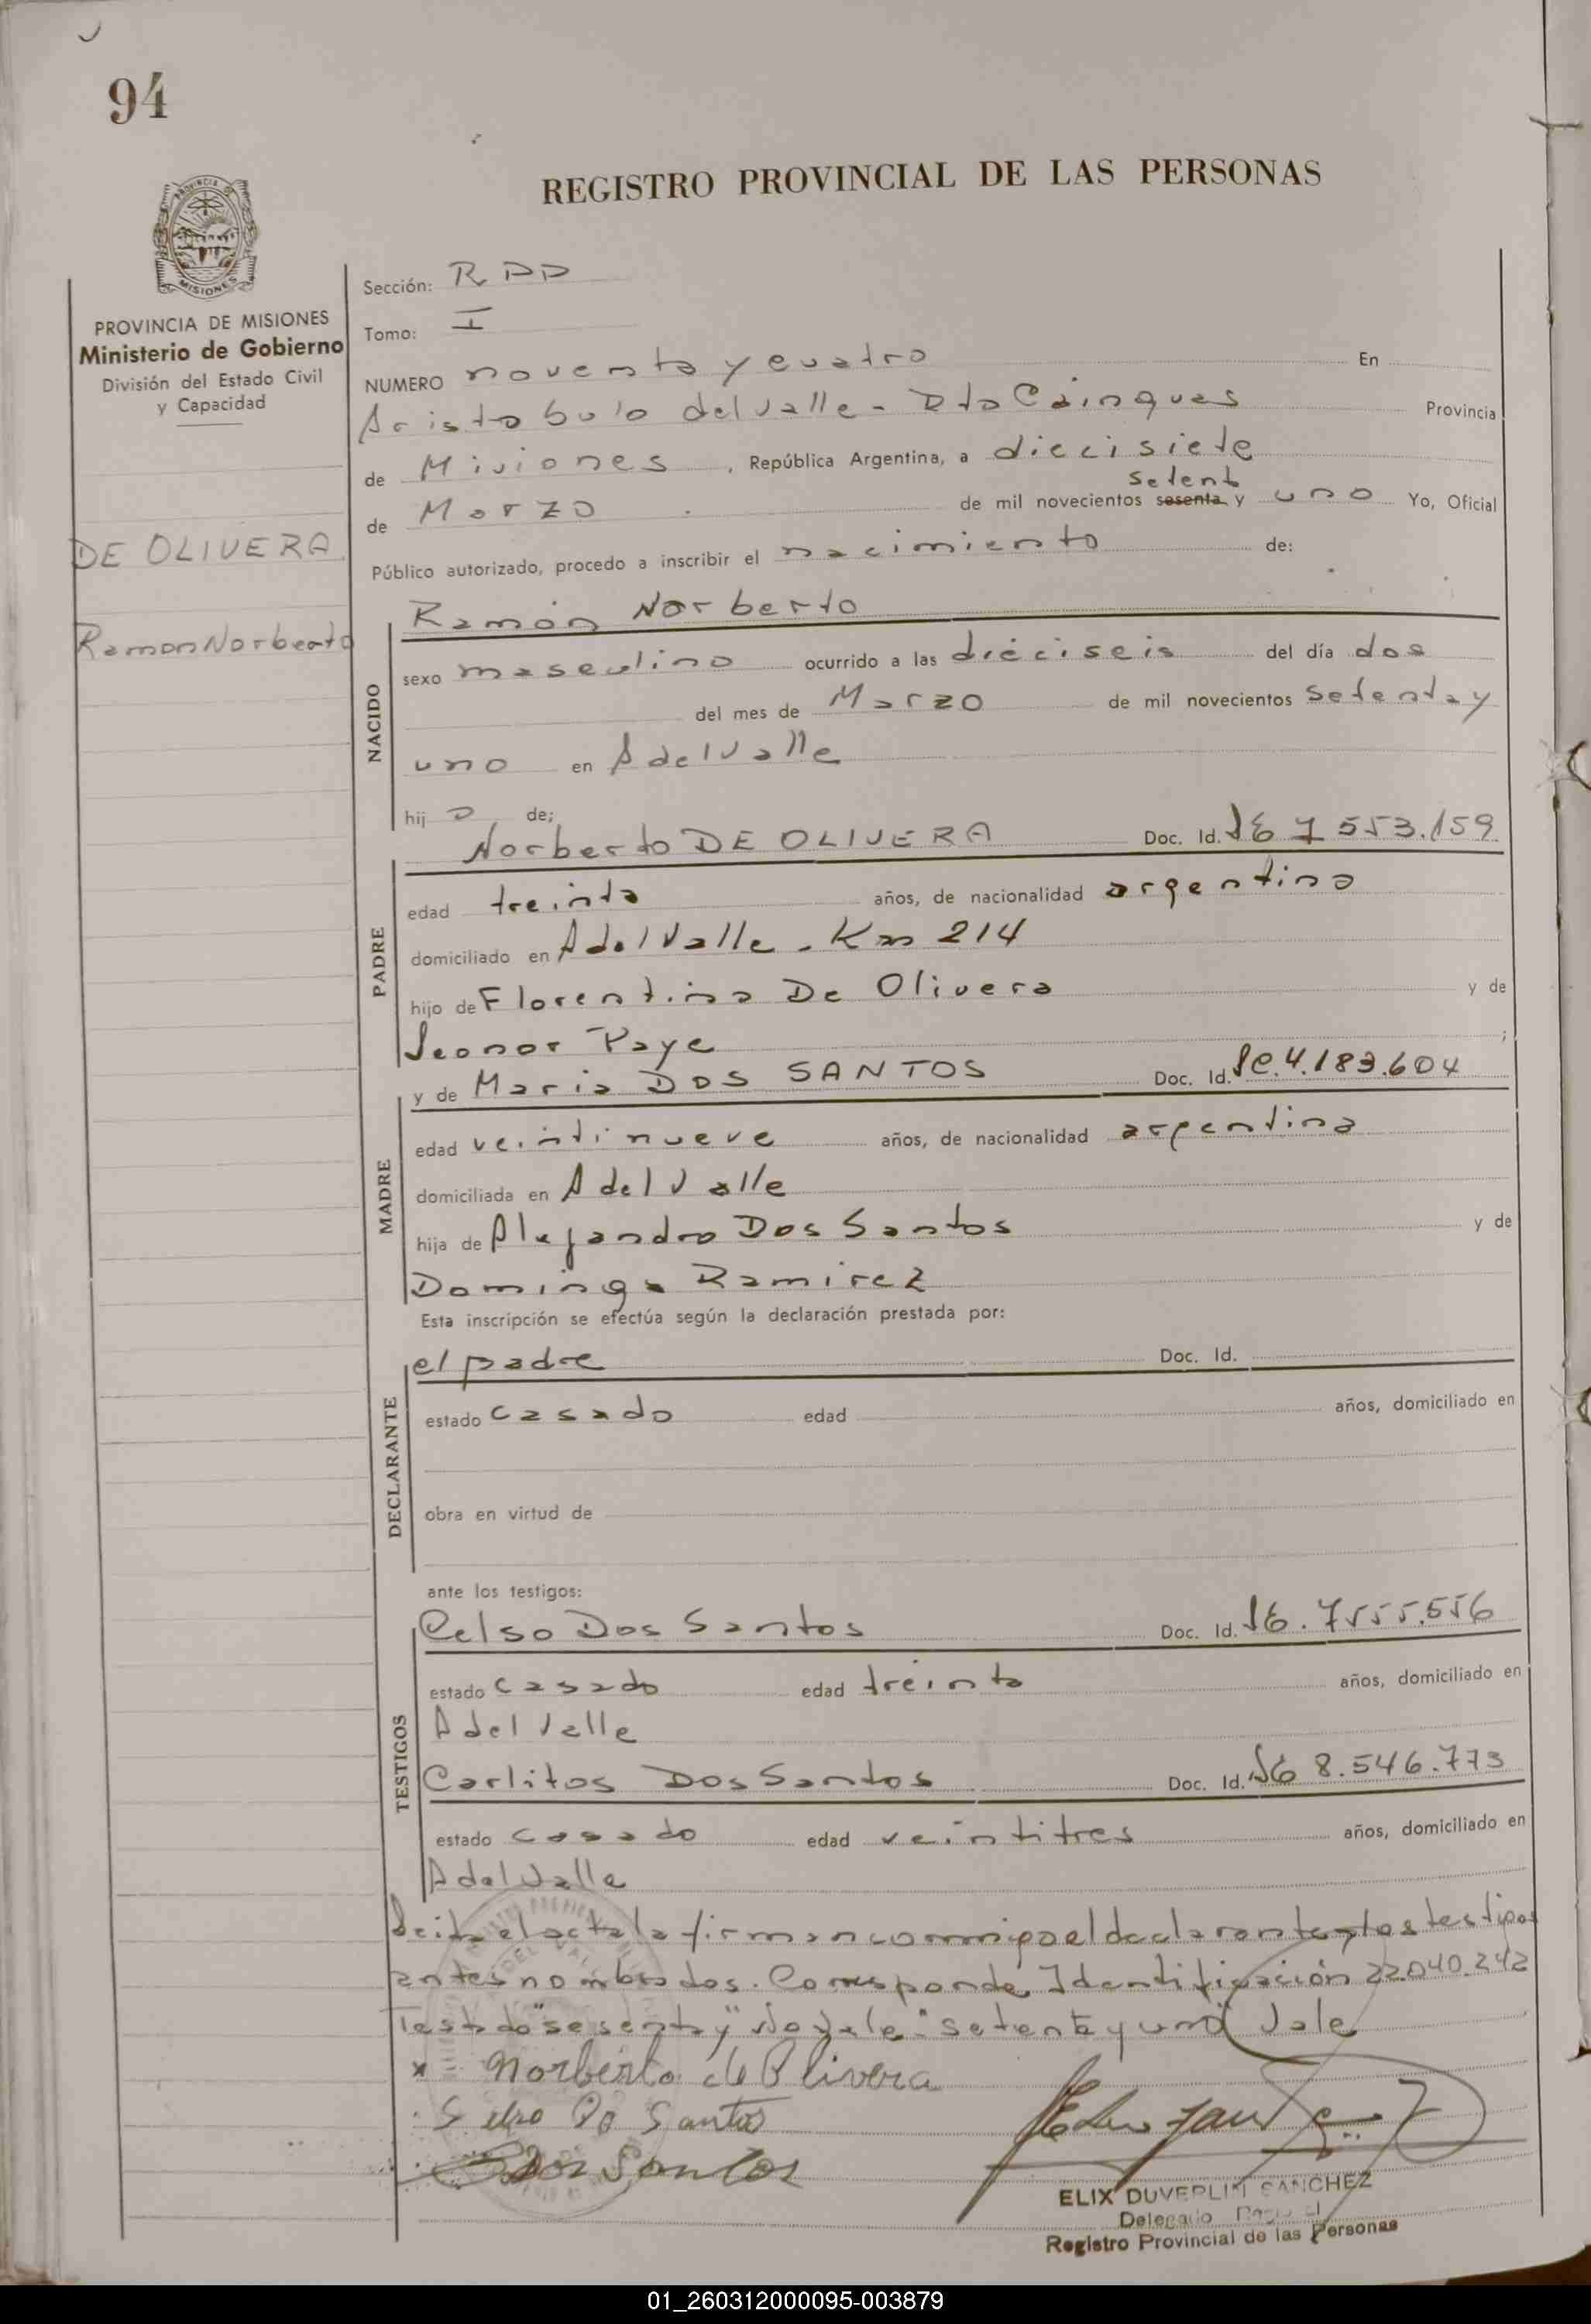 94
PROVINCIA DE
MISIONES
REGISTRO PROVINCIAL DE LAS PERSONAS
PROVINCIA DE MISIONES
Ministerio de Gobierno
División del Estado Civil
y Capacidad
DE OLIVERA
Ramon Norberto
Sección: RDD
Tomo: I
NUMERO noventa y cuatro En
Aristobulo del Valle - Dto Cainguas Provincia
de Misiones, República Argentina, a diecisiete
setent
de Marzo de mil novecientos sesenta y uno Yo, Oficial
Público autorizado, procedo a inscribir el nacimiento de:
NACIDO
Ramón Norberto
sexo masculino ocurrido a las dieciseis del día dos
del mes de Marzo de mil novecientos setenta y
uno en A del Valle
hij o de;
PADRE
Norberto DE OLIVERA Doc. Id. 7553.159
edad treinta años, de nacionalidad argentina
domiciliado en A del Valle - Km 214
hijo de Florentina De Olivera y de
Leonor Paye;
MADRE
y de Maria DOS SANTOS Doc. Id. Lc. 4.183.604
edad veintinueve años, de nacionalidad argentina
domiciliada en A del Valle
hija de Alejandro Dos Santos y de
Dominga Ramirez
Esta inscripción se efectúa según la declaración prestada por:
DECLARANTE
el padre Doc. Id.
estado casado edad años, domiciliado en
obra en virtud de
ante los testigos:
TESTIGOS
Celso Dos Santos Doc. Id. 7555.556
estado casado edad treinta años, domiciliado en
A del Valle
Carlitos Dos Santos Doc. Id. 8.546.773
estado casado edad veintitres años, domiciliado en
A del Valle
Leida el acta la firman conmigo el declarante y los testigos
antes nombrados. Corresponde Identificación 22.040.242
Testado "sesenta y" No Vale: "setenta y uno" Vale
x = Norberto de Olivera
Selso Do Santos
Dos Santos
ELIX DUVERLIN SANCHEZ
Delegado
Registro Provincial de las Personas
01_260312000095-003879